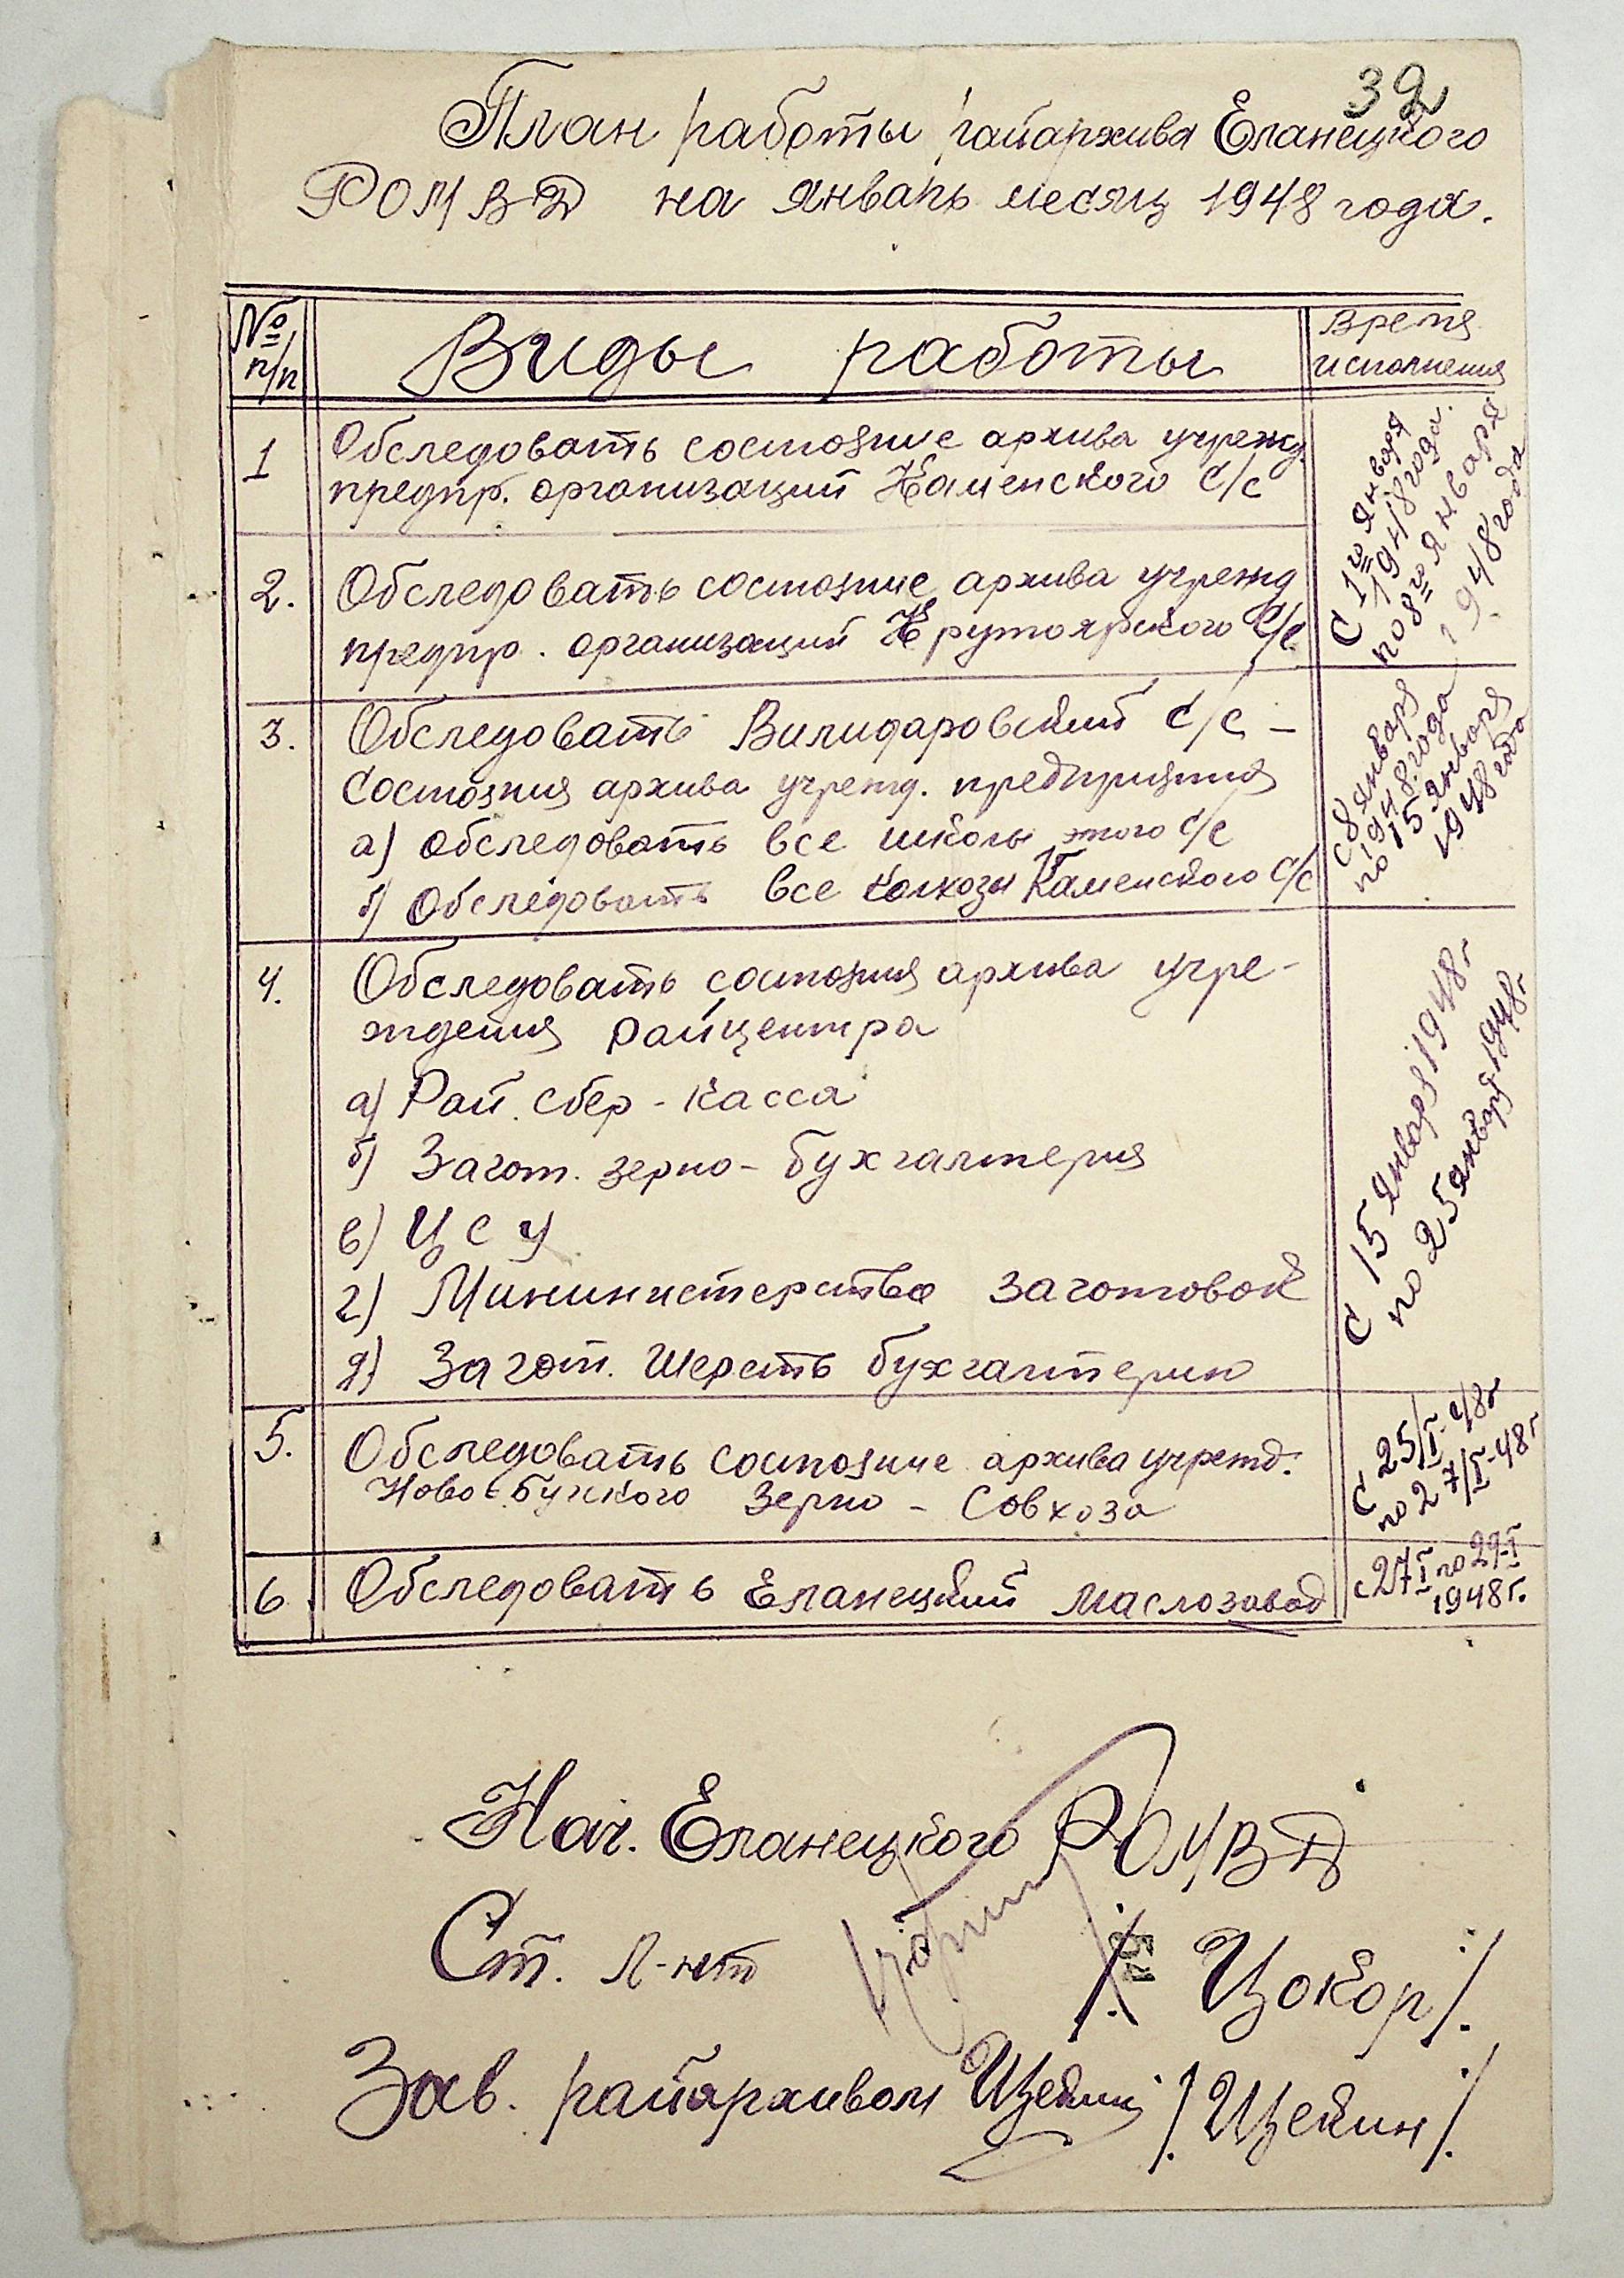 32
План работы райархива Еланецкого
РОМВД на январь месяц 1948 года.
№ п/п
Виды работы
Время исполнения
1
Обследовать состояние архива учрежд.
предпр. организаций Каменского С/с
С 1го января
1948 года.
по 8го января
1948 года
2.
Обследовать состояние архива учрежд
предпр. организаций Крутоярского С/с.
3.
Обследовать Вилидаровский С/с –
состояния архива учрежд. предприятия
а) обследовать все школы этого С/с
б) Обследовать все колхозы Каменского С/с
с 8 января
1948 года
по 15 января
1948 года
4.
Обследовать состояния архива учре-
ждения райцентра
а) Рай. сбер - касса
б) Загот. зерно - бухгалтерия
в) ЦСУ
г) Мининистерства заготовок
д) Загот. Шерсть бухгалтерию
С 15 января 1948 г
по 25 января 1948 г
5.
Обследовать состояние архива учрежд.
Ново-Бугского Зерно - Совхоза
С 25/I-48г
по 27/I-48г
6
Обследовать Еланецкий маслозавод
с 27 I по 29-I
1948 г.
Нач. Еланецкого РОМВД
Ст. Л-нт /Цокор/.
Зав. райархивом Щекин /Щекин/.